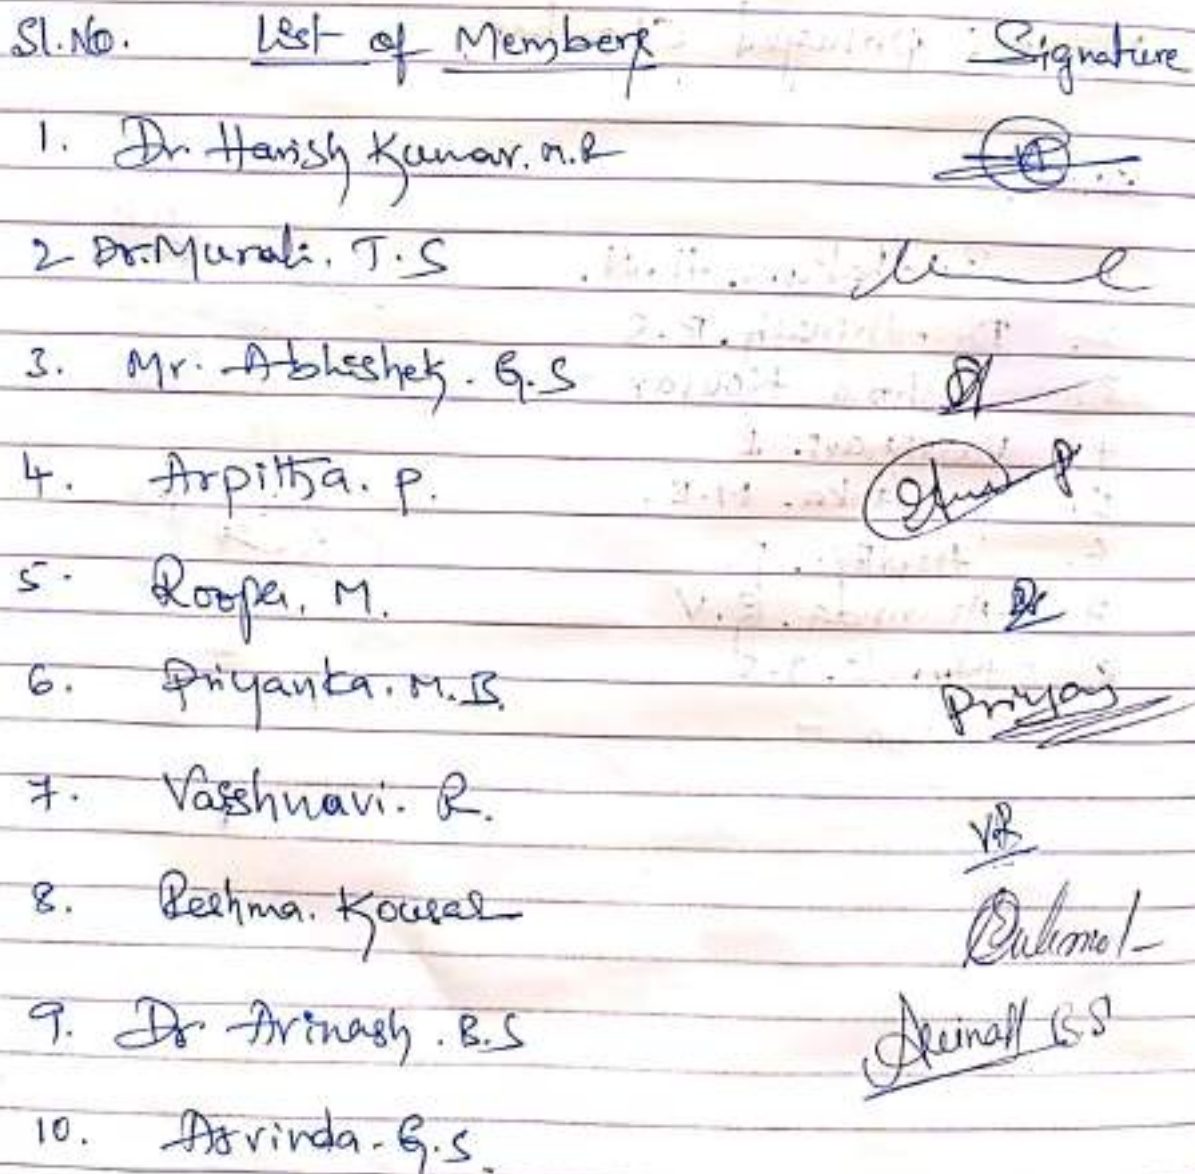 Sl.No. List of Members Signature
1. Dr. Harish Kumar. M.R
2 Dr. Murali. T.S
3. Mr. Abhishek. G.S
4. Arpitha. P.
5. Roopa. M.
6. Priyanka. M.B. Priyan
7. Vaishnavi. R. VR
8. Reshma. Kousar
9. Dr Avinash. B.S Avinash B S
10. Arvinda. G.S.